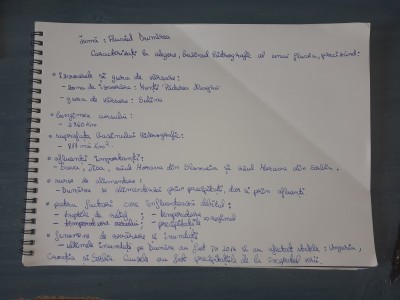 Temă: Fluviul Dunărea
Caracterizați la alegere, bazinul hidrografic al unui fluviu, precizând:
• Izvoarele și gura de vărsare:
- zona de izvorâre: Munții Pădurea Neagră
- gura de vărsare: Sulina
• lungimea cursului:
- 2860 Km
• suprafața bazinului hidrografic:
- 817 mii Km²
• afluenți importanți:
- Sava, Tisa, râul Morava din Slovacia și râul Morava din Serbia.
• surse de alimentare:
- Dunărea se alimentează prin precipitații, dar și prin afluenți
• patru factori care influențează debitul:
- topirea de zăpezi; - temperatura
- temperatura aerului; - precipitațiile
• fenomene de scurgere și inundații
- ultimele inundații pe Dunăre au fost în 2014 și au afectat statele: Ungaria,
Croația și Serbia. Cauzele au fost precipitațiile de la începutul verii.